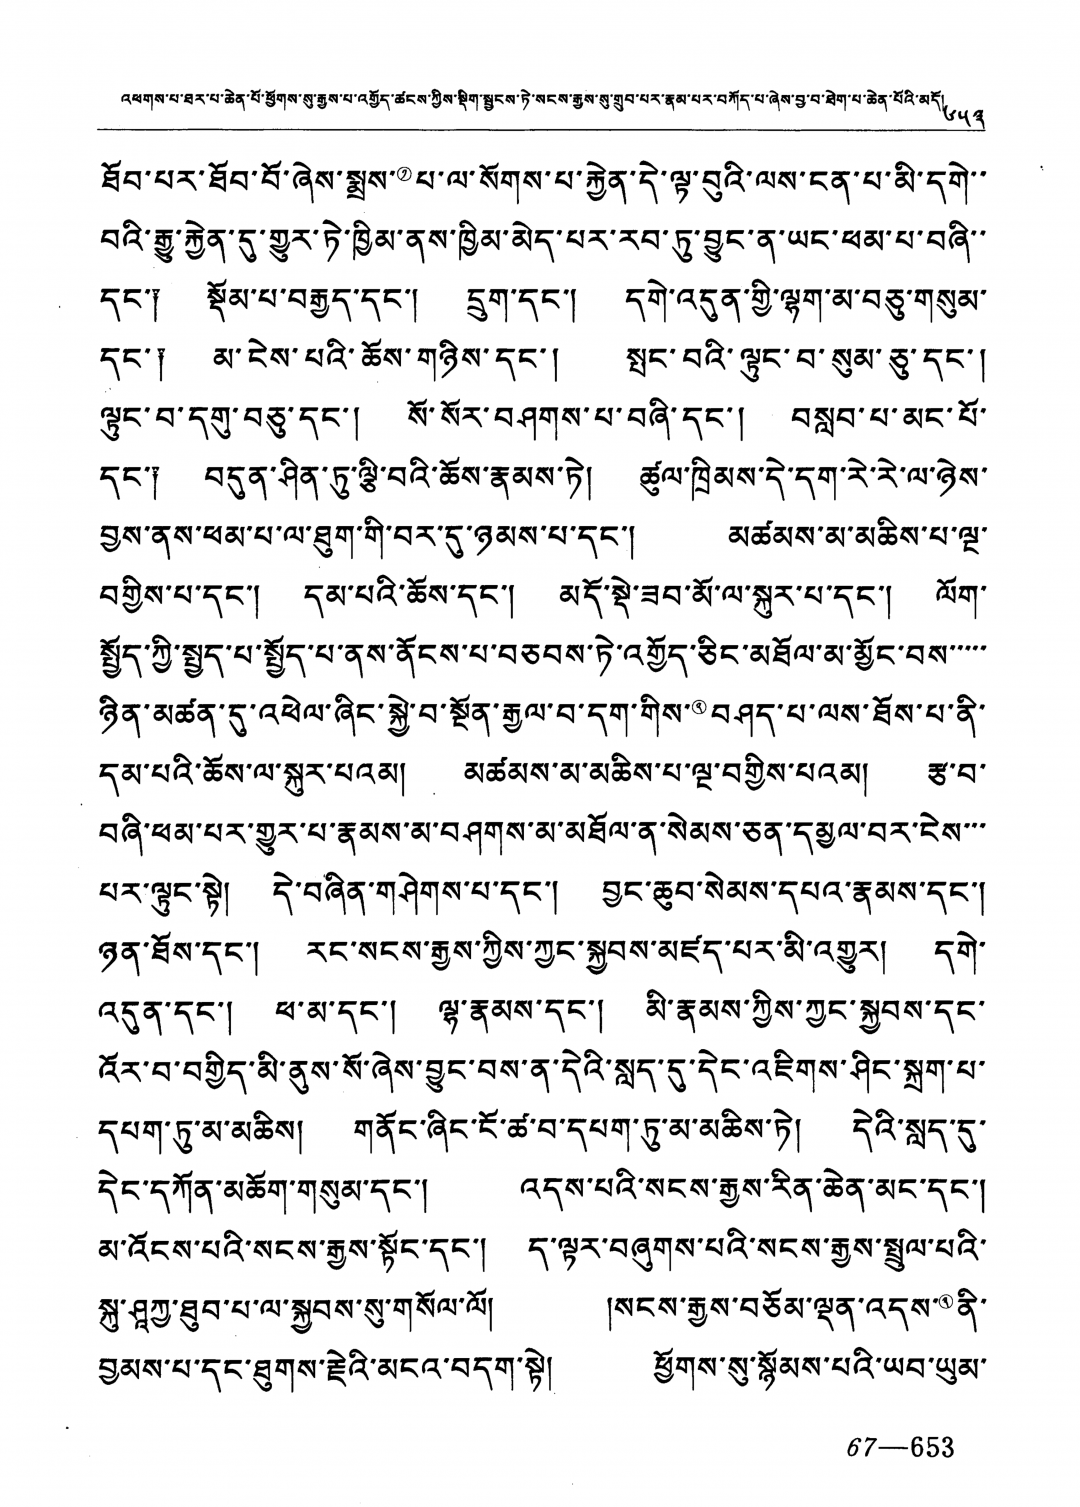 འཕགས་པ་ཐར་པ་ཆེན་པོ་ཕྱོགས་སུ་རྒྱས་པ་འགྱོད་ཚངས་ཀྱིས་སྡིག་སྦྱངས་ཏེ་སངས་རྒྱས་སུ་གྲུབ་པར་རྣམ་པར་བཀོད་པ་ཞེས་བྱ་བ་ཐེག་པ་ཆེན་པོའི་མདོ། ༦༥༣
ཐོབ་པར་ཐོབ་བོ་ཞེས་སྨྲས་①པ་ལ་སོགས་པ་རྐྱེན་དེ་ལྟ་བུའི་ལས་ངན་པ་མི་དགེ་་
བའི་རྒྱུ་རྐྱེན་དུ་གྱུར་ཏེ་ཁྱིམ་ནས་ཁྱིམ་མེད་པར་རབ་ཏུ་བྱུང་ན་ཡང་ཕམ་པ་བཞི་་
དང་། སྡོམ་པ་བརྒྱད་དང་། དྲུག་དང་། དགེ་འདུན་གྱི་ལྷག་མ་བཅུ་གསུམ་
དང་། མ་ངེས་པའི་ཆོས་གཉིས་དང་། སྤང་བའི་ལྟུང་བ་སུམ་ཅུ་དང་།
ལྟུང་བ་དགུ་བཅུ་དང་། སོ་སོར་བཤགས་པ་བཞི་དང་། བསླབ་པ་མང་པོ་
དང་། བདུན་ཤིན་ཏུ་ལྕི་བའི་ཆོས་རྣམས་ཏེ། ཚུལ་ཁྲིམས་དེ་དག་རེ་རེ་ལ་ཉེས་
བྱས་ནས་ཕམ་པ་ལ་ཐུག་གི་བར་དུ་ཉམས་པ་དང་། མཚམས་མ་མཆིས་པ་ལྔ་
བགྱིས་པ་དང་། དམ་པའི་ཆོས་དང་། མདོ་སྡེ་ཟབ་མོ་ལ་སྐུར་པ་དང་། ལོག་
སྤྱོད་ཀྱི་སྤྱད་པ་སྤྱོད་པ་ནས་ནོངས་པ་བཅབས་ཏེ་འགྱོད་ཅིང་མཐོལ་མ་མྱོང་བས་་་་་
ཉིན་མཚན་དུ་འཕེལ་ཞིང་སྐྱེ་བ་སྔོན་རྒྱལ་བ་དག་གིས་②བཤད་པ་ལས་ཐོས་པ་ནི་
དམ་པའི་ཆོས་ལ་སྐུར་པའམ། མཚམས་མ་མཆིས་པ་ལྔ་བགྱིས་པའམ། རྩ་བ་
བཞི་ཕམ་པར་གྱུར་པ་རྣམས་མ་བཤགས་མ་མཐོལ་ན་སེམས་ཅན་དམྱལ་བར་ངེས་་་
པར་ལྟུང་སྟེ། དེ་བཞིན་གཤེགས་པ་དང་། བྱང་ཆུབ་སེམས་དཔའ་རྣམས་དང་།
ཉན་ཐོས་དང་། རང་སངས་རྒྱས་ཀྱིས་ཀྱང་སྐྱབས་མཛད་པར་མི་འགྱུར། དགེ་
འདུན་དང་། ཕ་མ་དང་། ལྷ་རྣམས་དང་། མི་རྣམས་ཀྱིས་ཀྱང་སྐྱབས་དང་
འོར་བ་བགྱིད་མི་ནུས་སོ་ཞེས་བྱུང་བས་ན་དེའི་སླད་དུ་དེང་འཇིགས་ཤིང་སྐྲག་པ་
དཔག་ཏུ་མ་མཆིས། གནོང་ཞིང་ངོ་ཚ་བ་དཔག་ཏུ་མ་མཆིས་ཏེ། དེའི་སླད་དུ་
དེང་དཀོན་མཆོག་གསུམ་དང་། འདས་པའི་སངས་རྒྱས་རིན་ཆེན་མང་དང་།
མ་འོངས་པའི་སངས་རྒྱས་སྟོང་དང་། ད་ལྟར་བཞུགས་པའི་སངས་རྒྱས་སྤྲུལ་པའི་
སྐུ་ཤཱཀྱ་ཐུབ་པ་ལ་སྐྱབས་སུ་གསོལ་ལོ། །སངས་རྒྱས་བཅོམ་ལྡན་འདས་③ནི་
བྱམས་པ་དང་ཐུགས་རྗེའི་མངའ་བདག་སྟེ། ཕྱོགས་སུ་སྙོམས་པའི་ཡབ་ཡུམ་
67—653